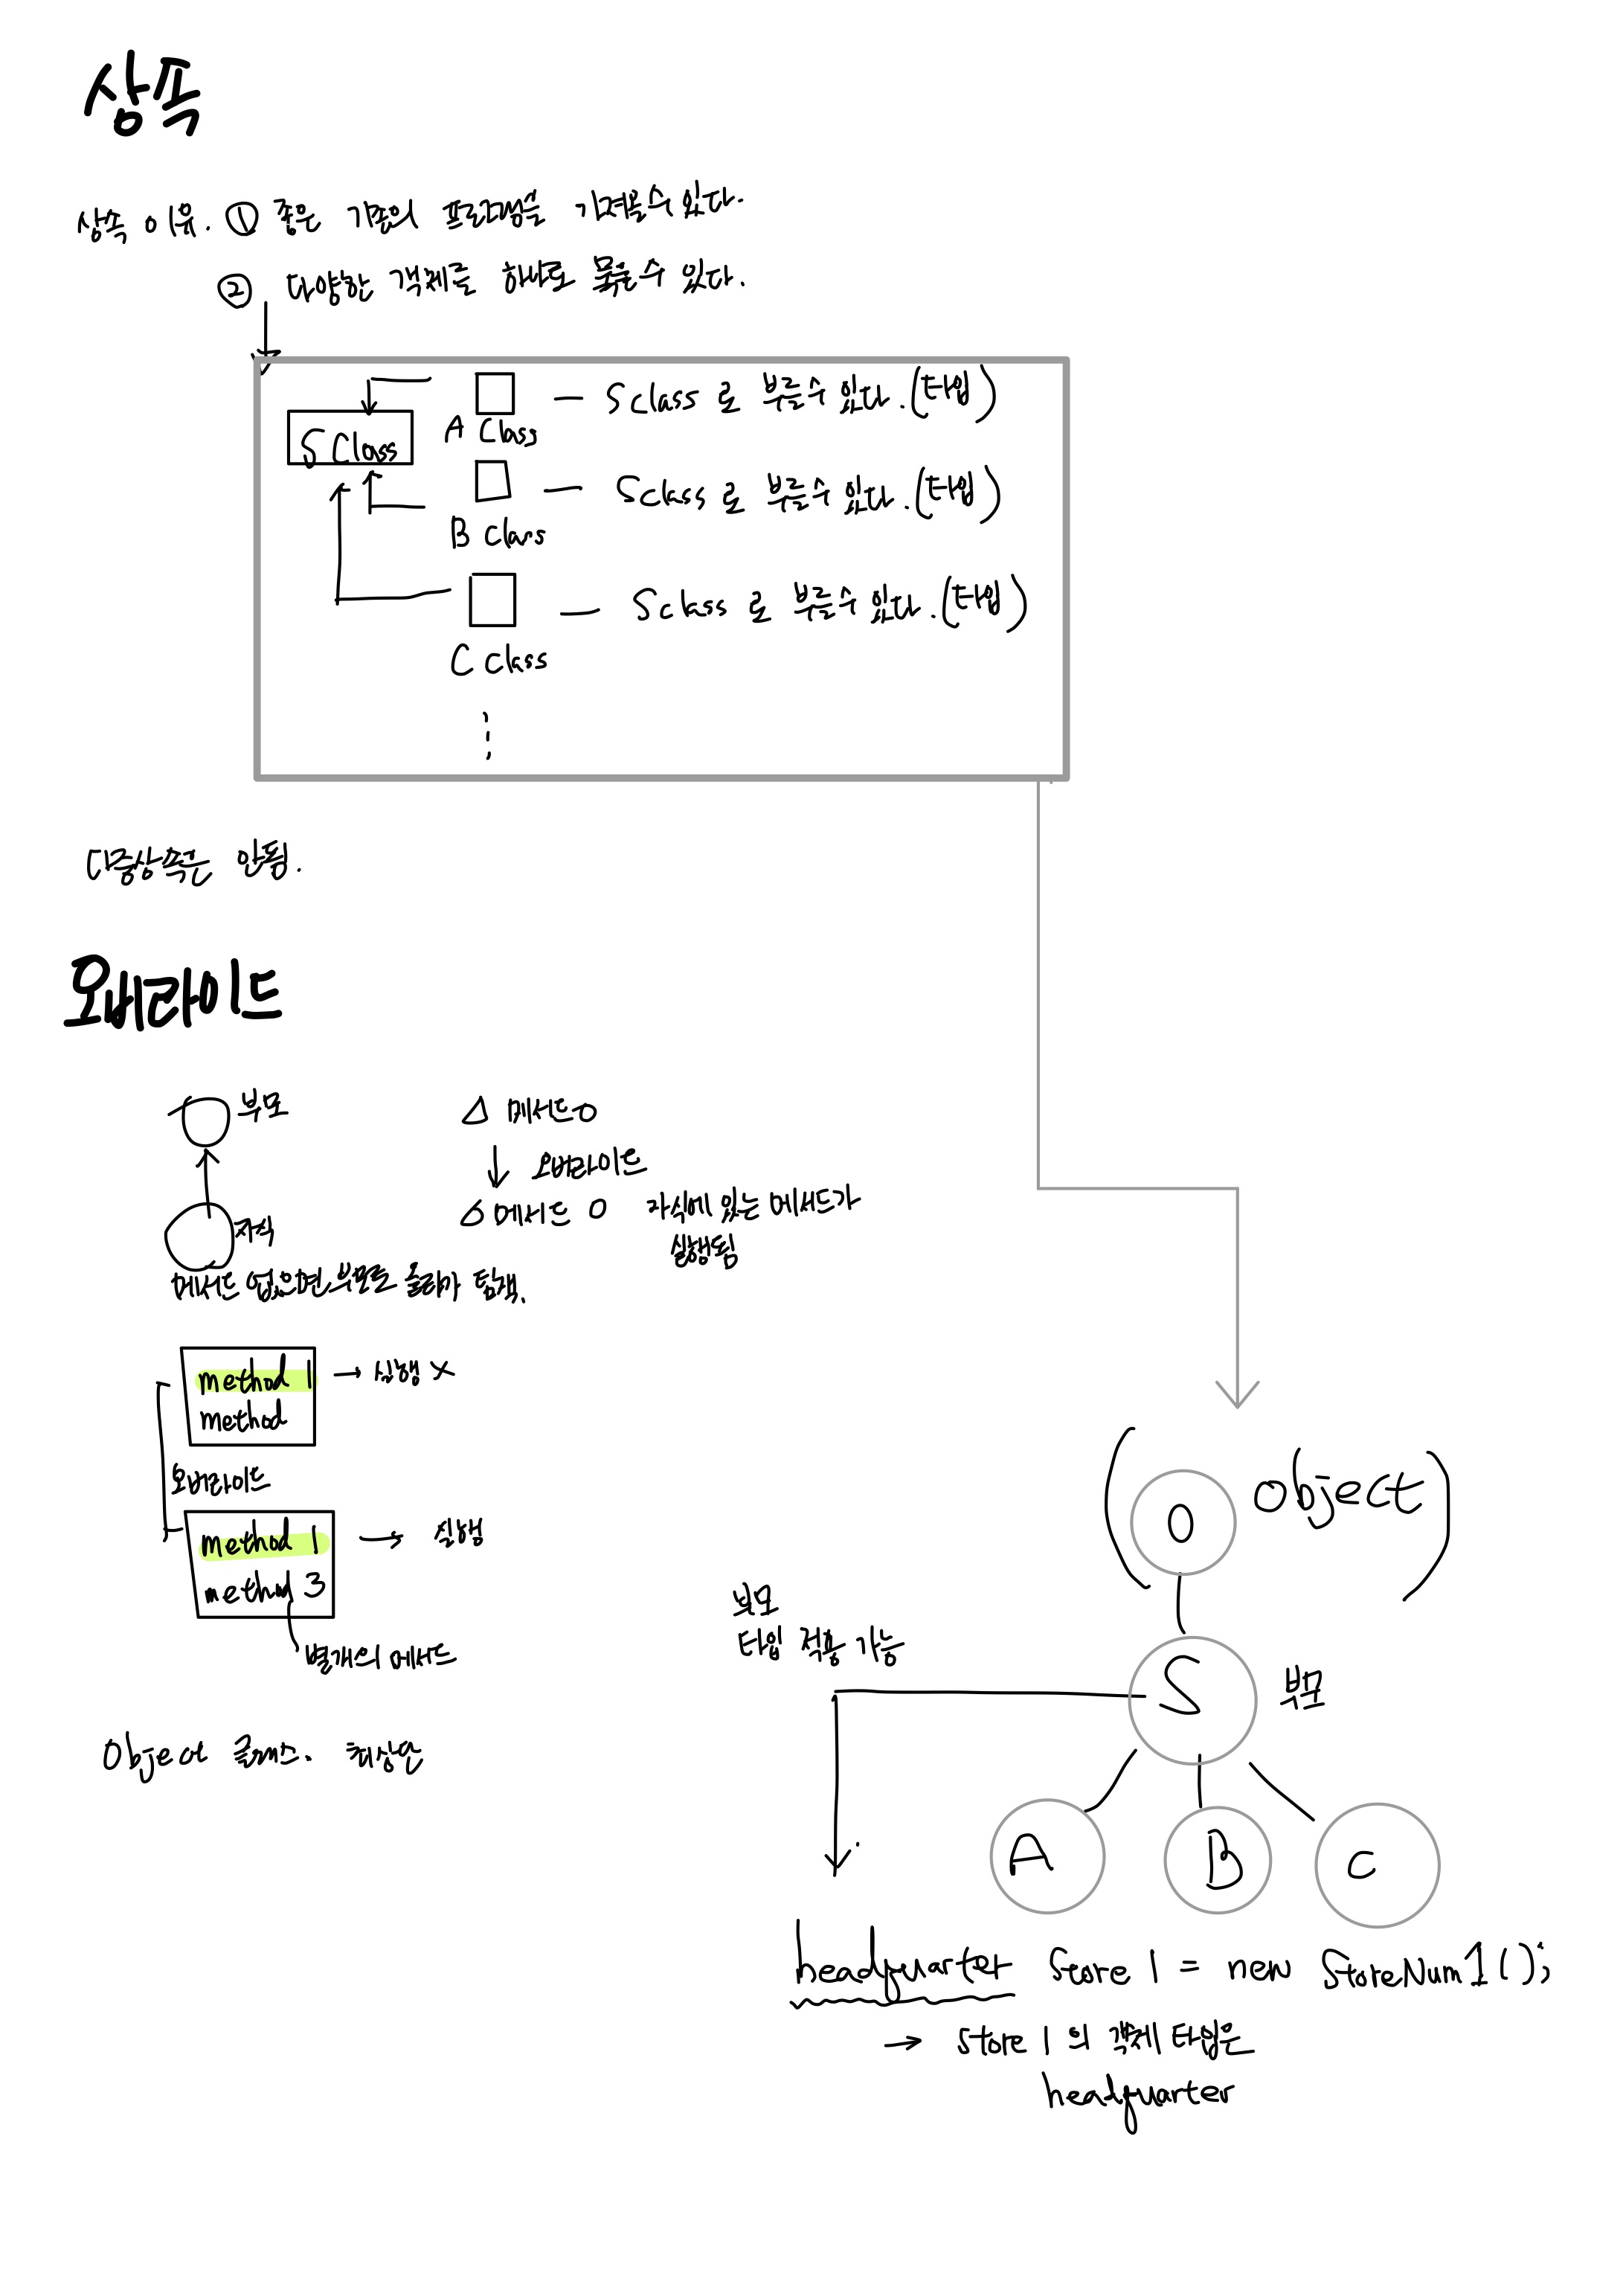 상속
상속 이유. ① 좋은 기존의 프로그램을 가져올수있다.
② 다양한 객체를 하나로 묶을수 있다.
S Class
A Class
— S class 로 부를수 있다.(타입)
B Class
— S class 로 부를수 있다.(타입)
C class
— S class 로 부를수 있다.(타입)
다중상속은 안됨.
오버라이드
부모
자식
메서드 없으면 부모로 올라가 탐색.
△ 메서드 O
↓ 오버라이드
△ 메서드 O 자식에 있는 메서드가
실행됨
method 1 → 실행 X
method
오버라이드
method 1 → 실행
method 3
별개의 메서드
Object 클래스. 최상단
(O object)
S 부모
A B C
부모
타입 적용 가능
headquarter Store 1 = new StoreNum1();
→ Store 1 의 객체 타입은
headquarter